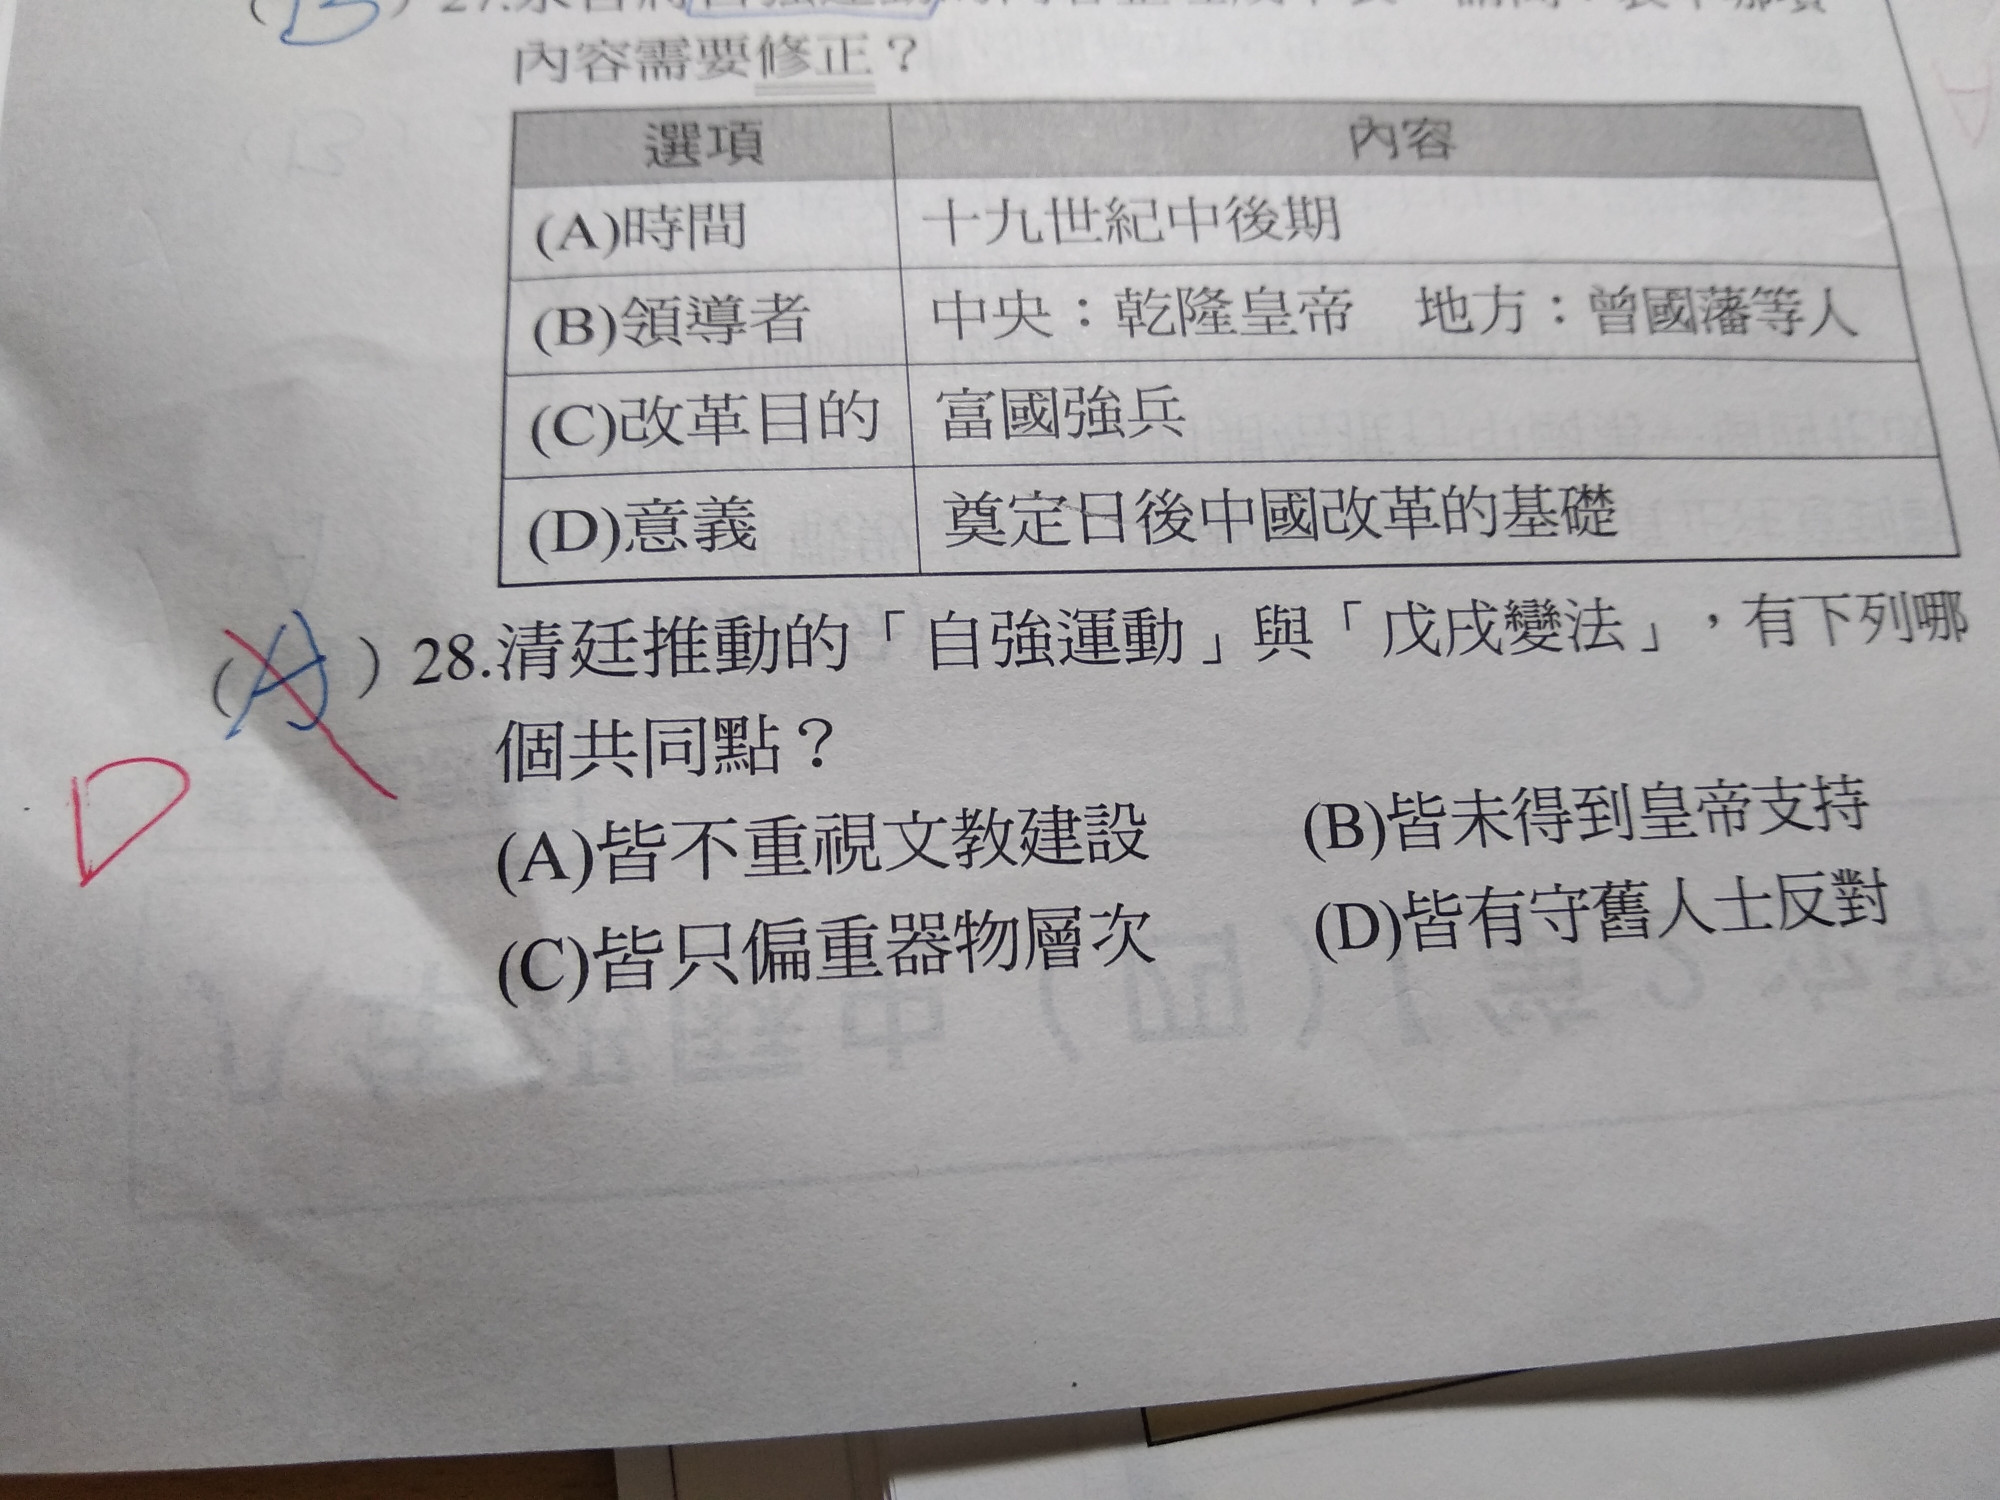 (B) 27.
內容需要修正？
選項 內容
(A)時間 十九世紀中後期
(B)領導者 中央：乾隆皇帝 地方：曾國藩等人
(C)改革目的 富國強兵
(D)意義 奠定日後中國改革的基礎
(A) 28.清廷推動的「自強運動」與「戊戌變法」，有下列哪
個共同點？
D
(A)皆不重視文教建設 (B)皆未得到皇帝支持
(C)皆只偏重器物層次 (D)皆有守舊人士反對